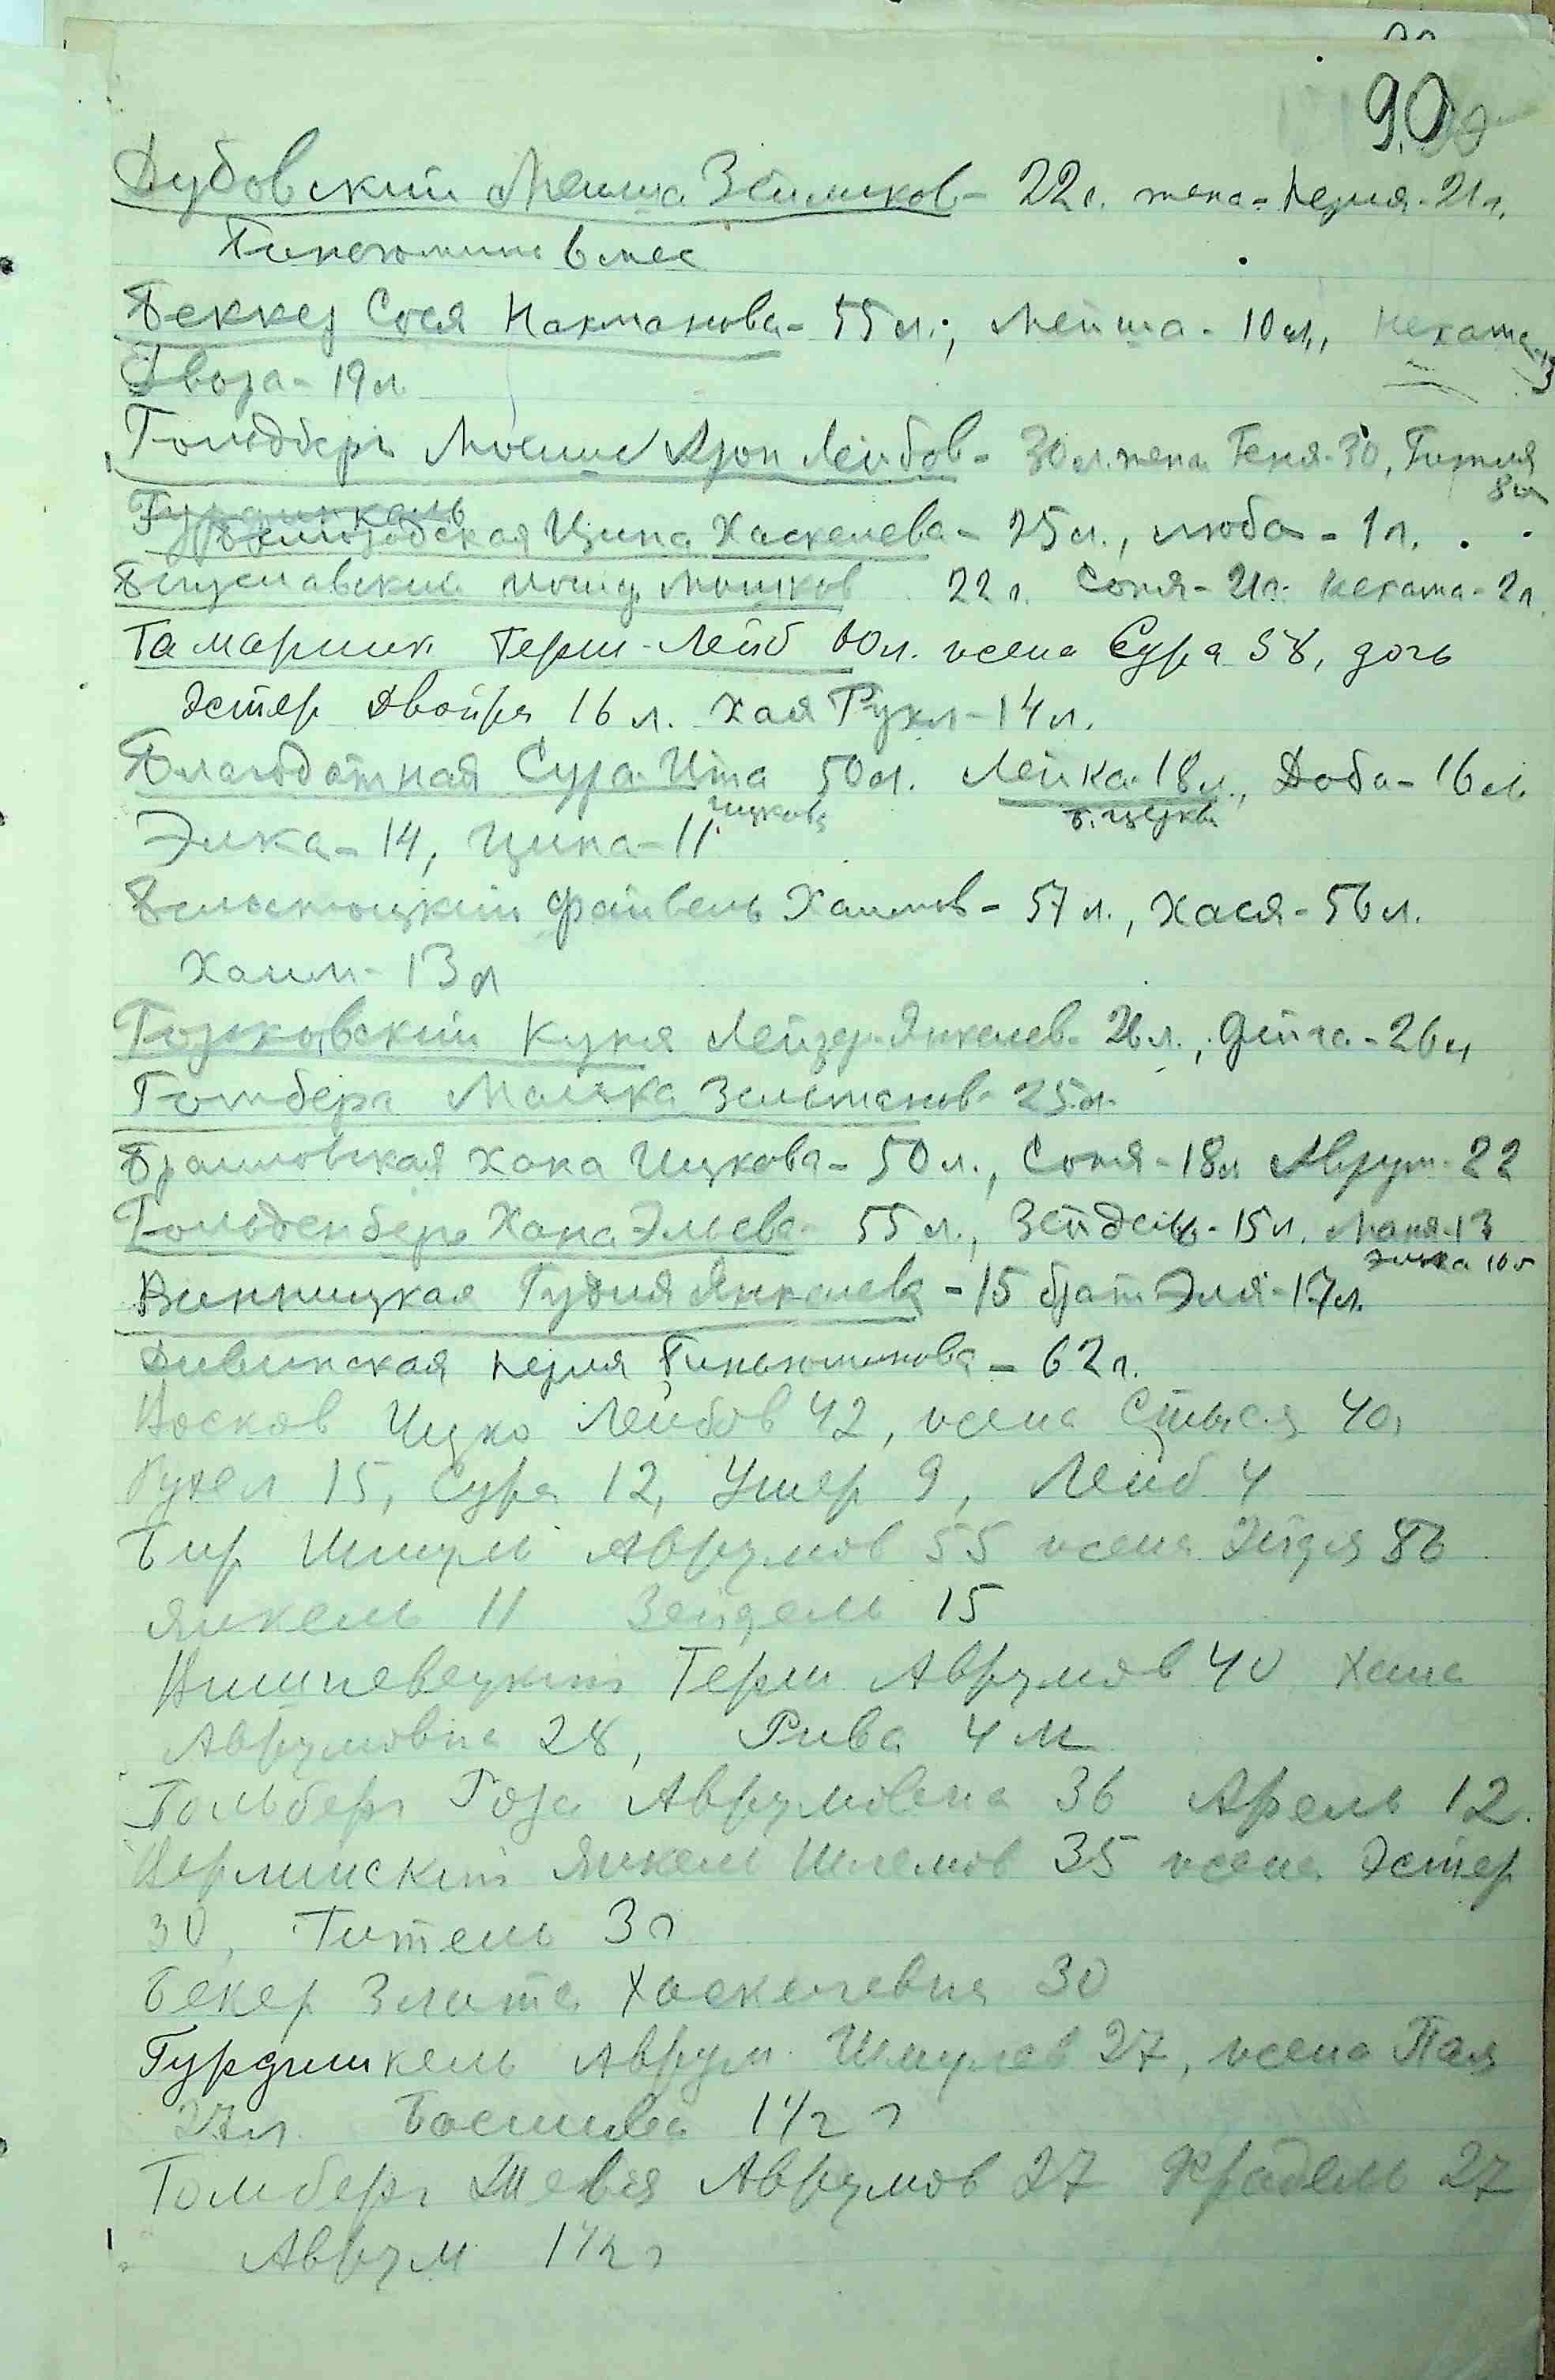 90
Дубовский Мейша Зейликов - 22 г. жена - Перля - 21 г.
6 мес
Беккер Сося Нахманова - 55 л., Мейша - 10 л., Нехама - 13
Двора - 19 л.
Гольдберг Моше Арон Лейбов - 30 л. жена Геня - 30, Гитля
8 л
Гурдишкель
Белгородская Ципа Хаскелева - 25 л., Люба - 1 г.
Богуславский Мошков 22 г. Соня - 21 г. Нехама - 2 г.
Тамаркин Герш-Лейб 60 л. жена Сура 58, дочь
Эстер Двойра 16 л. Хая Рухл - 14 л.
Благодатная Сура-Ита 50 л. Лейка - 18 л., Доба - 16 л
Ицкова
Элка - 14, Ципа - 11
Файвель Хаимов - 57 л., Хася - 56 л.
Хаим - 13 л
Горжковский Куня Лейзер-Янкелев - 26 л., - 26 л
Гомберг Малка Зельманов - 25 л.
Браиловская Хана Ицкова - 50 л., Соня - 18 л Аврум - 22
Гольденберг Хана Эльева - 55 л., Зейдель - 15 л. Маня - 13
Элька 10 л
Винницкая Гудля Янкелева - 15 брат Эля - 17 л.
Дивинская Перля - 62 г.
Восков Ицко Лейбов 42, жена Стыся 40,
Рухел 15, Сура 12, Ушер 9, Лейб 4
Бир Шмуль Аврумов 55 жена Эйдля 56
Янкель 11 Зейдель 15
Вишневецкий Герш Аврумов 40 Хана
Аврумовна 28, Рива 4 м
Гольберг Роза Аврумовна 36 Арель 12.
Янкель Шлемов 35 жена Эстер
30, Гитель 3 г
Бекер Злата Хаскелевна 30
Гурдишкель Аврум Шмулев 27, жена Пая
27 л. Босшива 1 1/2 г
Гомберг Шевля Аврумов 27 Фрадель 27
Аврум 1 1/2 г